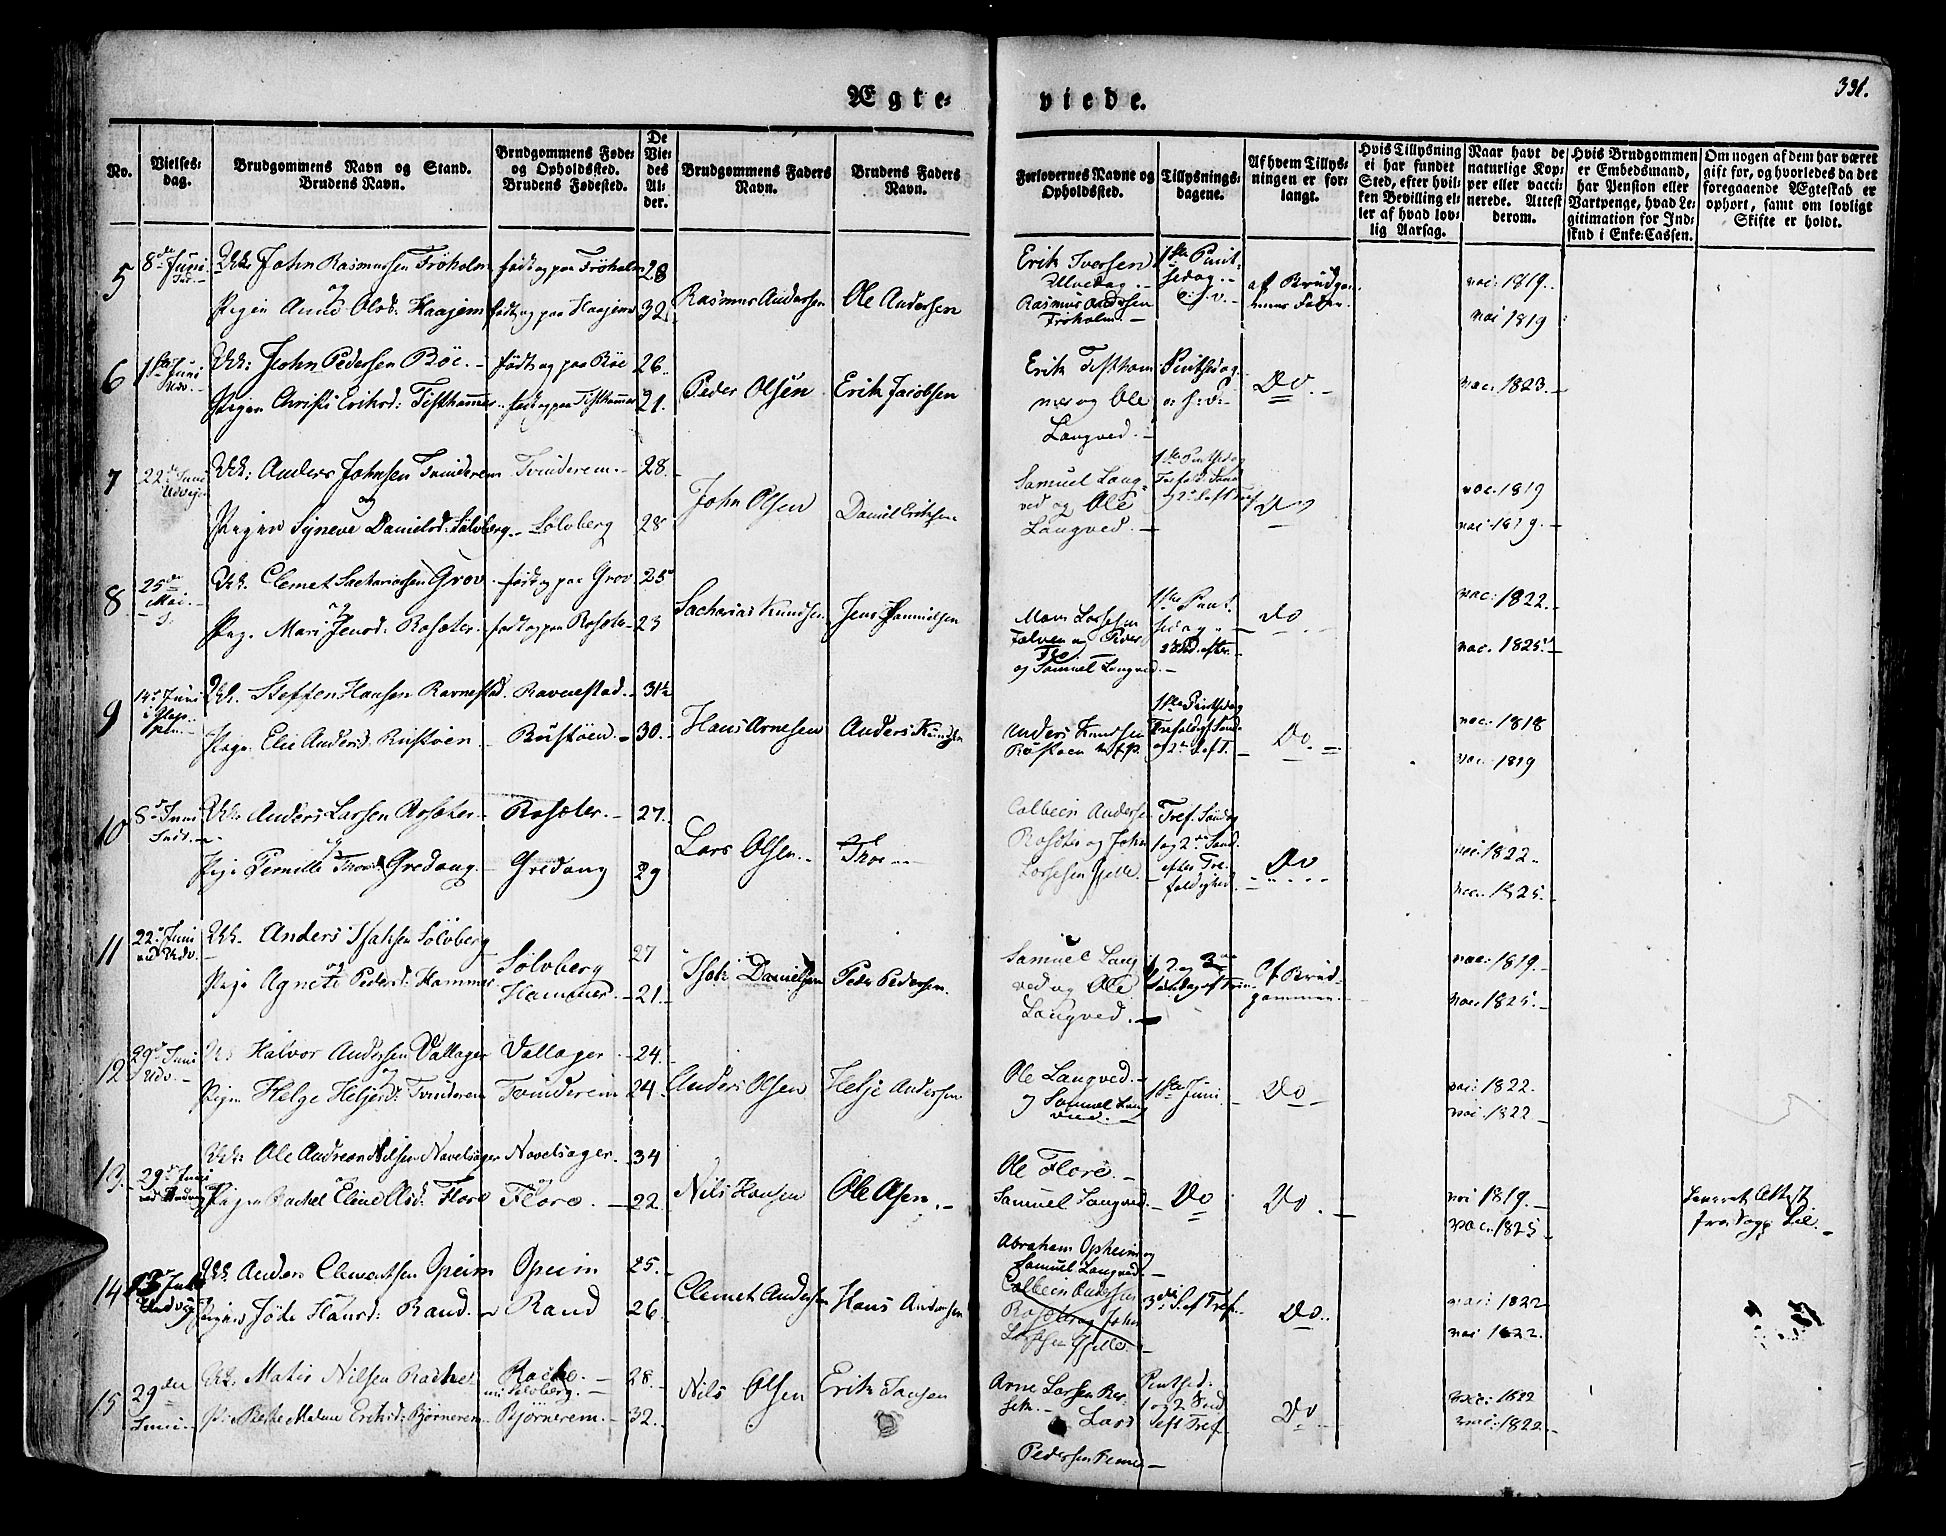 Ægte-
viede.
331.
No.
Vielses-
dag.
Brudgommens Navn og Stand.
Brudens Navn.
Brudgommens Føde-
og Opholdssted.
Brudens Fødested.
De
Vie-
des
Al-
der.
Brudgommens Faders
Navn.
Brudens Faders
Navn.
Forlovernes Navne og
Opholdssted.
Tillysnings-
dagene.
Af hvem Tillys-
ningen er for-
langt.
Hvis Tillysning
ei har fundet
Sted, efter hvil-
ken Bevilling el-
ler af hvad lov-
lig Aarsag.
Naar havt de
naturlige Kop-
per eller vacci-
nerede. Attest
derom.
Hvis Brudgommen
er Embedsmand,
har Pension eller
Vartpenge, hvad Le-
gitimation for Ind-
skud i Enke-Cassen.
Om nogen af dem har været
gift før, og hvorledes da det
foregaaende Ægteskab er
ophørt, samt om lovligt
Skifte er holdt.
5
8de Juni
Ind.
Ukl: John Rasmussen Frøholm
og
Pigen Anne Olsd: Haajem
født og paa Frøholm
født og paa Haajem
28
32
Rasmus Andersen
Ole Andersen
Erik Iversen
Ulvedag
Rasmus Andersen
Frøholm.
1ste Pint-
sedag
af Brudgo-
mens Fader
vac: 1819.
vac 1819
6
1ste Juni
Udv.
Ukl: John Pedersen Bøe.
Pigen Christi Eriksd: Tistkammer
født og paa Bøe
født og paa Tistkammer
26
21.
Peder Olsen
Erik Jacobsen
Erik Tistkam
mer og Ole
Langved.
Pintsedag
Do
vac. 1823.
7
22de Juni
Udvig
Ukl: Anders Johnsen Tvinderem
og
Pigen Synneve Danielsd: Sølvberg
Tvinderem
Sølvberg
28.
28
John Olsen
Daniel Eriksen
Samuel Lang-
ved og Ole
Langved.
1ste Pintsedag
Trefold. Sønd
og 2 S. eft Tref
Do
vac. 1819
vac. 1819.
8
25de
Mai.
Ukl. Clemet Sachariassen Grov
og
Pige. Mari Jensd: Rosæter.
født og paa Grov
født og paa Rosæte
25
23
Sacharias Knudsen
Jens Samuelsen
Mons Lassesen
og Samuel Langved.
1ste Pint.
sedag
Do
vac: 1822.
vac. 1825.
9
14de Juni
Ukl. Steffen Hansen Ravnestad.
Pige. Elie Andersd. Rustøen
Ravnestad.
Rustøen.
31½
30.
Hans Arnesen
Anders Knudsen
Anders Knudsen
Rustøen
1ste Pintsedag
Trefoldigh Sønd
og 2 S. eft T.
Do.
vac: 1818
vac. 1819
10
8de Juni
Indv.
Ukl. Anders Larsen Rosæter
og
Pige Pernille Thoresd. Gredang.
Rosæter.
Gredang
27.
29
Lars Olsen
Thore
Colbein Anderse
Rosæter og John
Lassesen Gjelle.
Tref. Søndag
1 og 2de Sønd.
efter Tre-
foldighed.
Do
vac: 1822.
vac. 1825.
11
22de Juni
ved Udv.
Ukl. Anders Isaksen Sølvberg
og
Pige Agnete Pedersd: Hammer
Sølvberg
Hammer.
27
21.
Isak Danielsen
Peder Pedersen.
Samuel Lang
ved og Ole
Langved.
Af Brud-
gommen
vac: 1819.
vac. 1825.
12
29de Juni
Udv.
Halvor Andersen Vallager
og
Pigen Helge Heljesd: Tvinderem
Vallager
Tvinderem
24.
24.
Anders Olsen
Helje Andersen
Ole Langved.
og Samuel Lang
ved.
1ste Juni
Do
vac: 1822.
vac. 1822
13.
29de Juni
ved Indvig
Ukl: Ole Andreas Nilsen Navelsager
og
Pigen Rachel Eline Olsd: Flore
Navelsager.
Flore
34
22.
Nils Hansen
Ole Olsen
Ole Flore.
Samuel Langved.
Do
Do.
vac 1819.
vac. 1825
Leveret Attest
fra Sogp Lie.
14
13de Juli
Indvig
Ukl. Anders Clementsen Opeim
Pigen Jøde Hansd: Rand.
Opeim
Rand
25.
26.
Clemet Andersen
Hans Andersen
Abraham Opheim og
Samuel Langved.
Colbein Andersen
Rosæter og John
Lassesen Gjelle.
3die S. ef Tref.
Do.
vac: 1822
vac 1822.
15
29de
Juni
Ukl. Matis Nilsen Racke
Pi: Berthe Malene Eriksd: Bjørnerem.
Racke.
Sølvberg.
Bjørnerem.
28.
32.
Nils Olsen
Erik Jansen
Arne Larsen Re-
set.
Lars
Pedersen
Pintsed:
1 og 2 Sønd
eft Tref.
Do.
vac: 1822
vac: 1822.